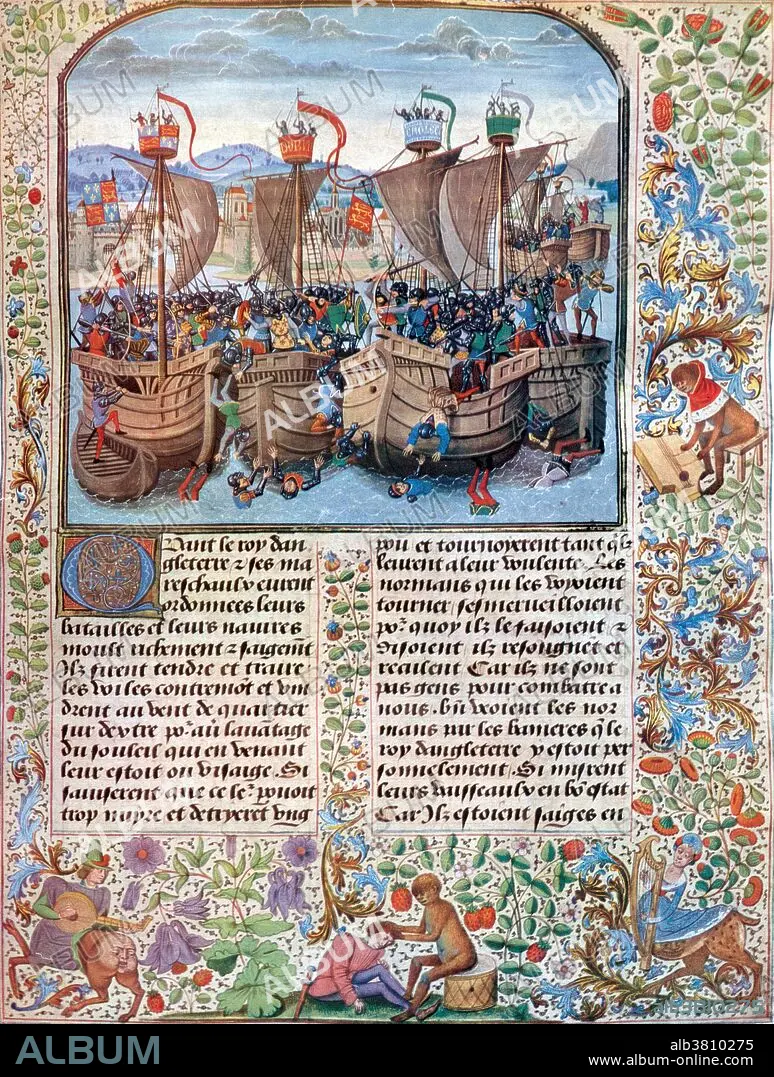 Quant le roy dan
gleterre & ses ma
reschaulx eurent
ordonnees leurs
batailles et leurs navires
moult richement & saigemt̄
Ilz firent tendre et traire
les voiles contremōt et vin
drent au vent de quartier
sur dextre poʳ au lavātage
du souleil qui en venant
leur estoit ou visaige. Si
saviserent que ce leʳ povoit
trop nuyre et detryerēt vng
pou et tournoyerent tant qlz
leurent a leur voulente. Les
normans qui les voyoient
tourner sesmerveilloient
poʳ quoy ilz le faisoient &
disoient ilz resongnēt et
reculent Car ilz ne sont
pas gens pour combatre a
nous. bn̄ veoient les nor
mans sur les banieres q̄ le
roy dangleterre y estoit per
sonnelement. Si misrent
leurs vaisseaulx en bō estat
Car Ilz estoient saiges en
ALBUM
alb3810275
www.album-online.com